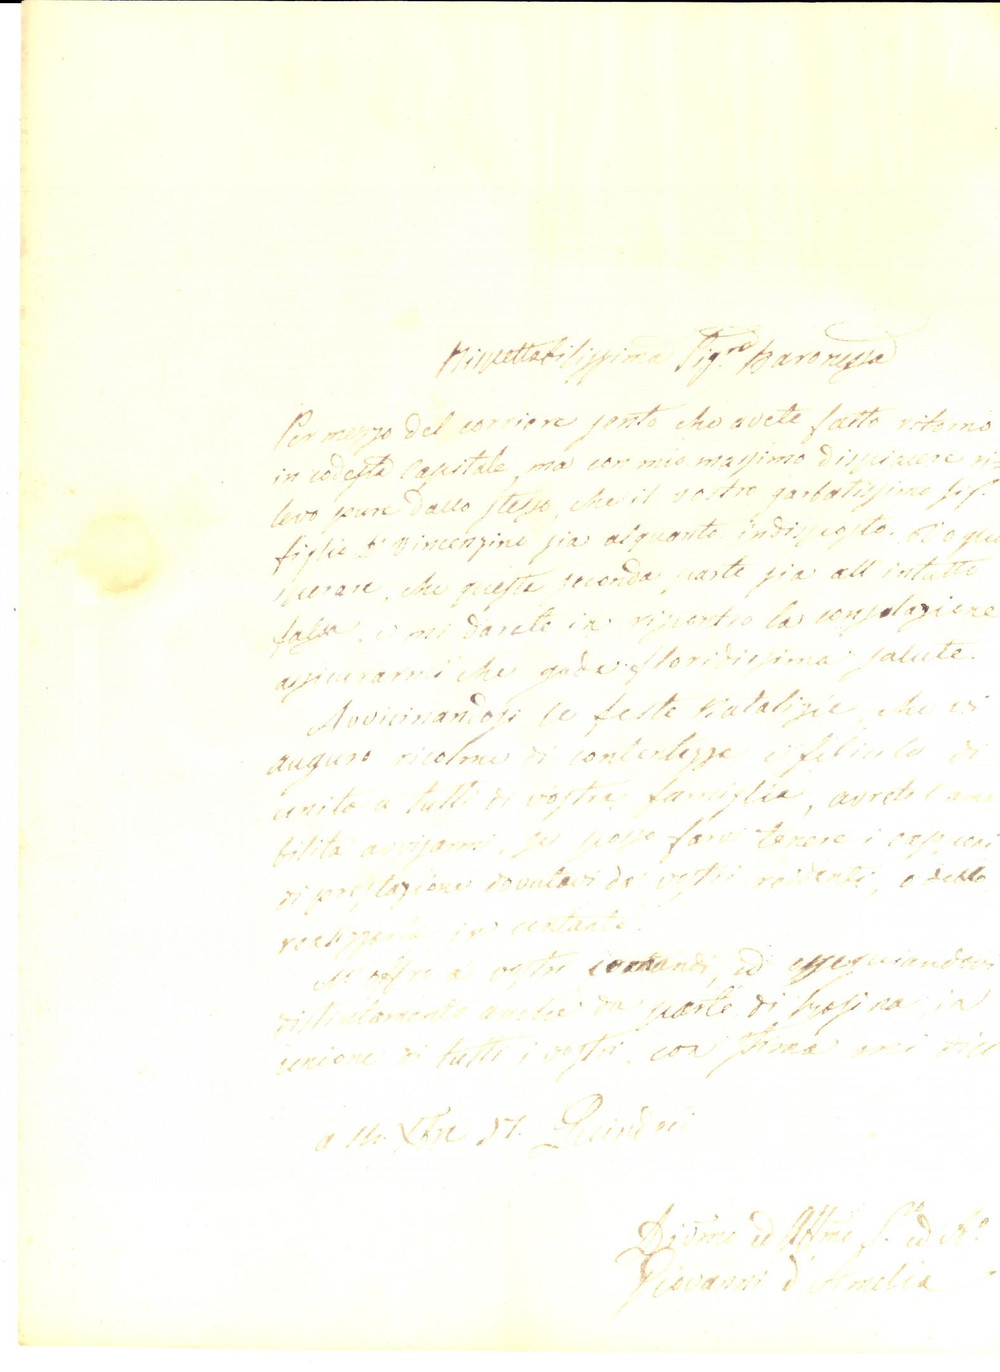 Rispettabilissima Sig.ra Baronessa
Per mezzo del corriere sento che avete fatto ritorno
in codesta Capitale, ma con mio massimo dispiacere ri=
levo pure dallo stesso, che il vostro garbatissimo Sig.
figlio D. Vincenzino sia alquanto indisposto.
sperare, che questa seconda parte sia all intutto
falsa, e mi darete in riscontro la consolazione
assicurarmi che gode floridissima salute.
Avvicinandosi le feste Natalizie, che vi
auguro ricolme di contentezze e felicità di
unito a tutti di vostra famiglia, avrete l'ama
bilità avvisarmi, se posso farvi tenere i
di prestazione dovutavi da vostri redditi, o
in contante.
M'offro a vostri comandi, ed ossequiandovi
distintamente anche da parte di Rosina, in
unione di tutti i vostri, con stima mi dico
a 17. Quindeci
Div.mo ed Aff.mo S.e ed A.o
Giovanni d'Amelia